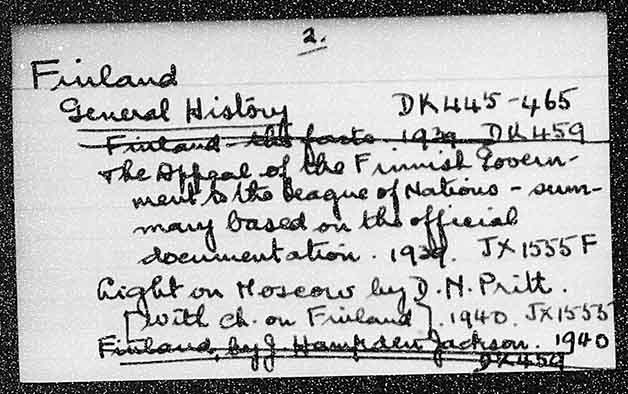 2.
Finland
General History DK445-465
Finland - the facts. 1939. DK459
The Appeal of the Finnish Govern-
ment to the League of Nations - sum-
mary based on the official
documentation. 1939. JX1555F
Light on Moscow by D. N. Pritt.
[With ch. on Finland]. 1940. JX1555
Finland, by J Hampden Jackson. 1940
DK459